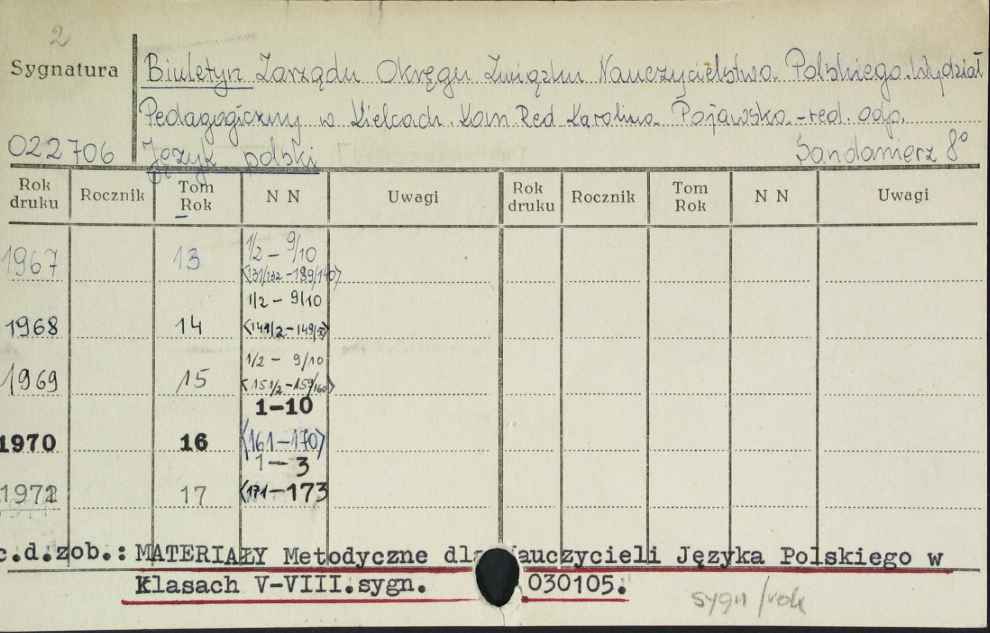 2
Sygnatura Biuletyn Zarządu Okręgu Związku Nauczycielstwa Polskiego. Wydział
Pedagogiczny w Kielcach. Kom Red Karolina Pojawska - red. odp.
022706 Język polski Sandomierz 8°
Rok druku Rocznik Tom Rok N N Uwagi Rok druku Rocznik Tom Rok N N Uwagi
1967 13 1/2 - 9/10
<131/132 - 139/140>
1/2 - 9/10
1968 14 <141/2 - 149/50>
1/2 - 9/10
1969 15 <151/2 - 159/160>
1-10
1970 16 <161-170>
1-3
1972 17 <171-173
c.d.zob.: MATERIAŁY Metodyczne dla Nauczycieli Języka Polskiego w
Klasach V-VIII. sygn. 030105.
sygn/rok